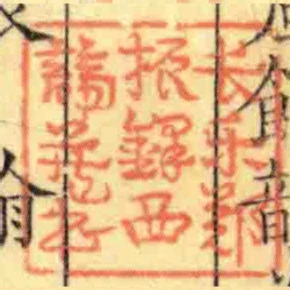 長樂鄭
振鐸西
諦藏書
翰